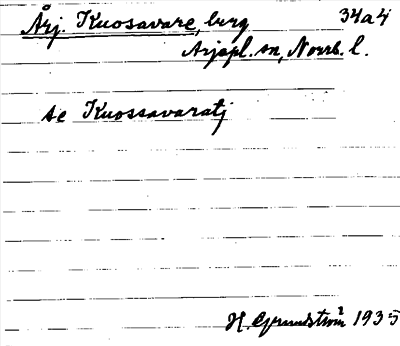 Årj. Kuosavare, berg 34a4
Arjepl. sn, Norrb. l.
se Kuossavaratj
H. Grundström 1935